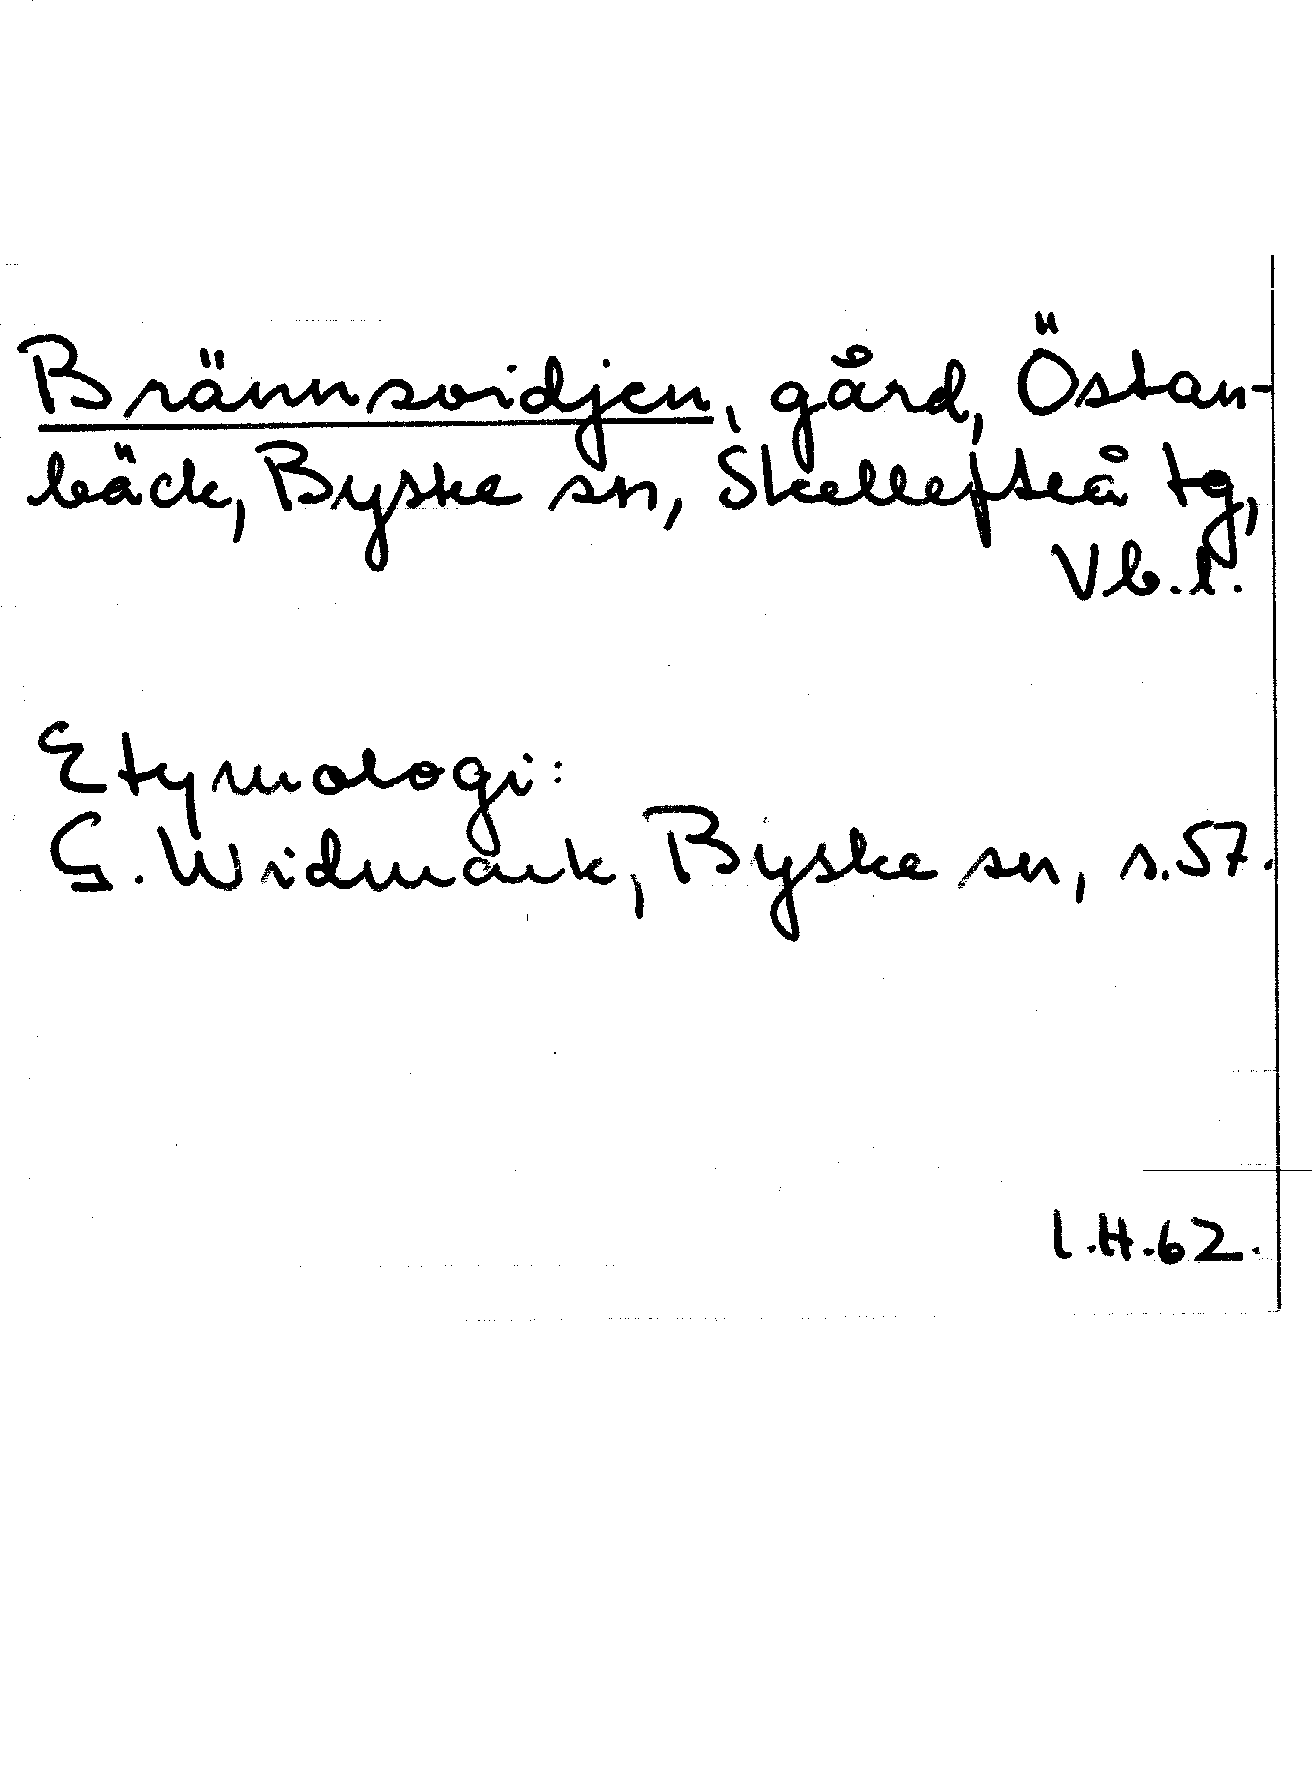 Brännsvidjen, gård, Östan-
bäck, Byske sn, Skellefteå tg,
Vb.l.
Etymologi:
G. Widmark, Byske sn, s.57.
I.H.62.